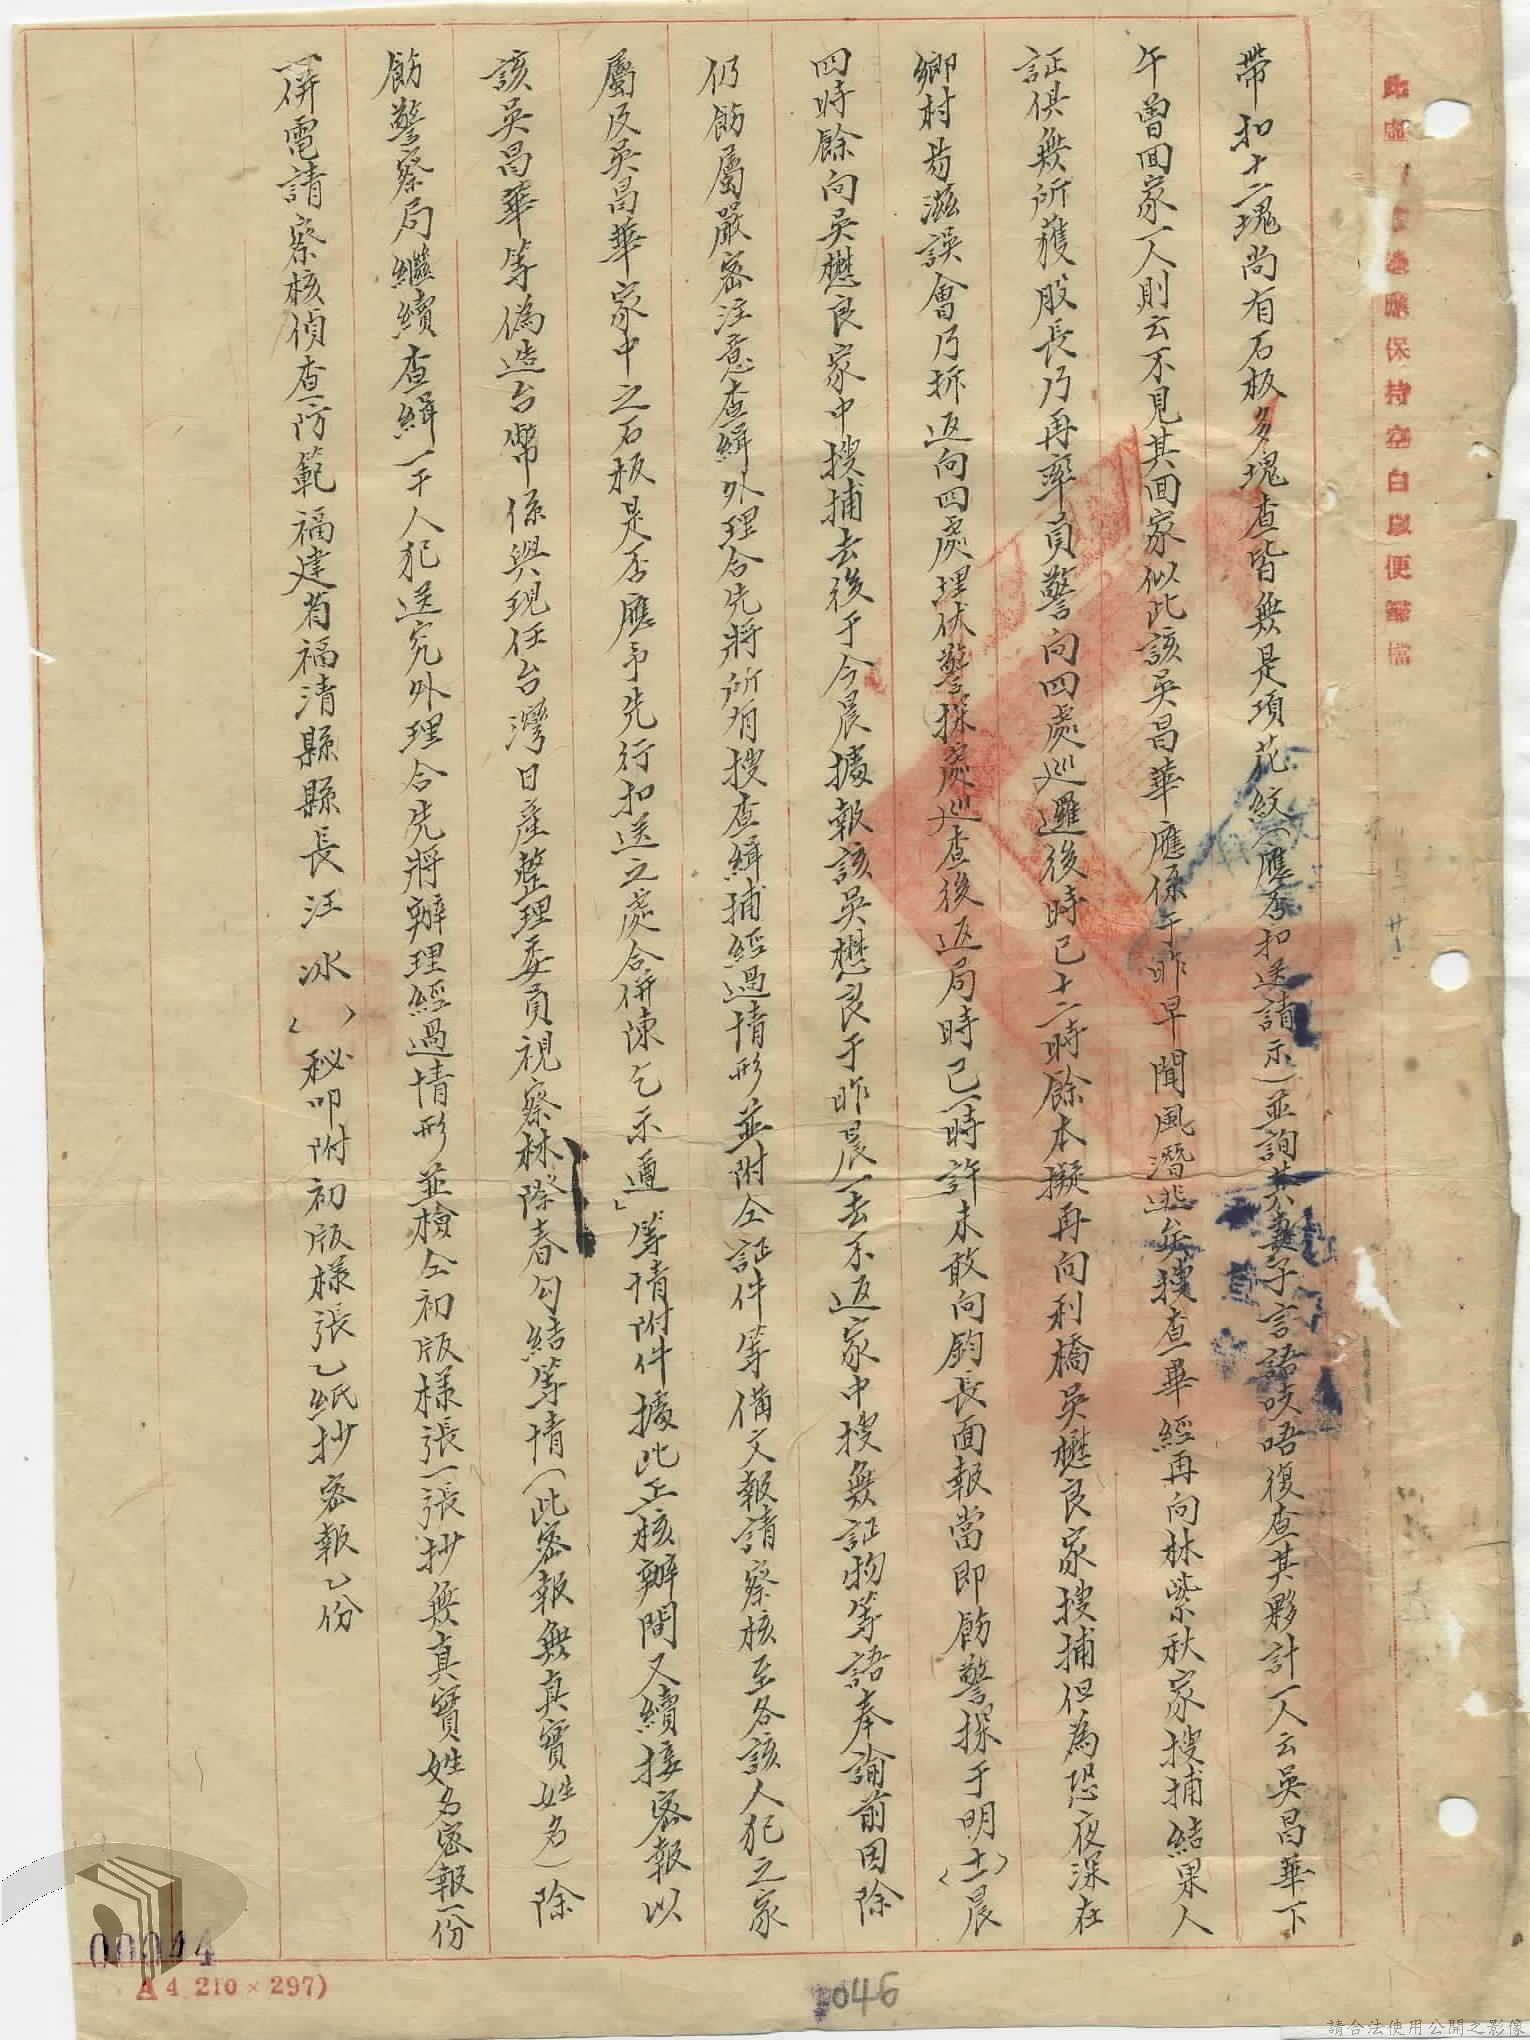 帶扣十二塊尚有石板多塊查皆無是項花紋(應否扣送請示)並詢其妻子言語吱唔復查其夥計一人云吳昌華下
午曾回家一人則云不見其回家似此該吳昌華應係于昨早聞風潛逃矣搜查畢經再向林紫秋家搜捕結果人
証俱無所獲股長乃再率員警向四處巡邏後時已十二時餘本擬再向利橋吳懋良家搜捕但為恐夜深在
鄉村易滋誤會乃折返向四處埋伏警探處巡查後返局時已一時許未敢向鈞長面報當即飭警探于明(十一)晨
四時餘向吳懋良家中搜捕去後于今晨據報該吳懋良于昨晨一去不返家中搜無証物等語奉諭前因除
仍飭屬嚴密注意查緝外理合先將所有搜查緝捕經過情形並附仝証件等備文報請察核至各該人犯之家
屬及吳昌華家中之石板是否應予先行扣送之處合併陳乞示遵」等情附件據此正核辦間又續接密報以
該吳昌華等偽造台幣係與現任台灣日產整理委員視察林際春勾結等情(此密報無真實姓名)除
飭警察局繼續查緝一干人犯送究外理合先將辦理經過情形並檢仝初版樣張一張抄無真實姓名密報一份
一併電請察核偵查防範福建省福清縣縣長汪冰( )秘叩附初版樣張乙紙抄密報乙份
此處 應保持空白以便歸檔
00044
A4 210×297)
046
請合法使用公開之影像